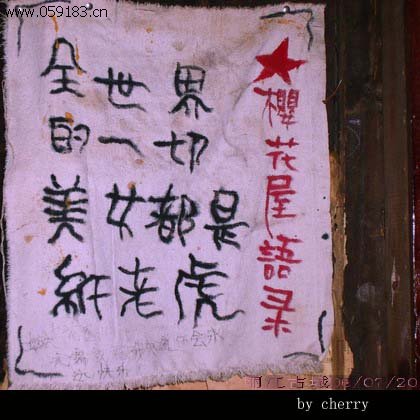 www.059183.cn
櫻花屋語录
全世界
的一切
美女都是
紙老虎
丽江古城06/07/20
by cherry